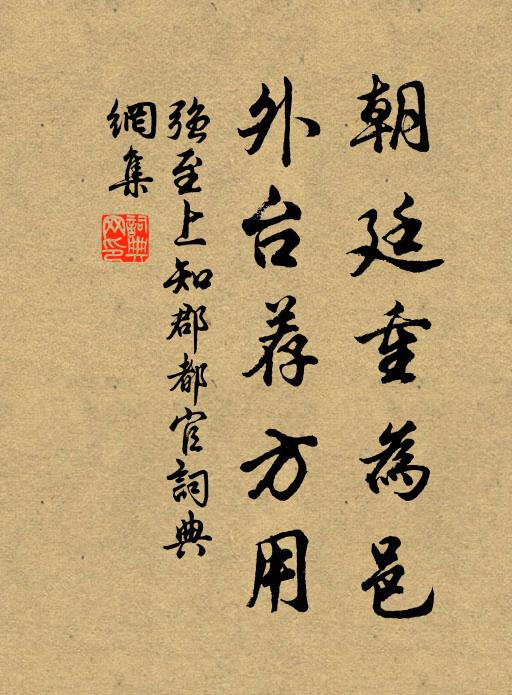 朝廷重為邑
外台荐方用
強至上知郡都官詞典
網集
詞典网印